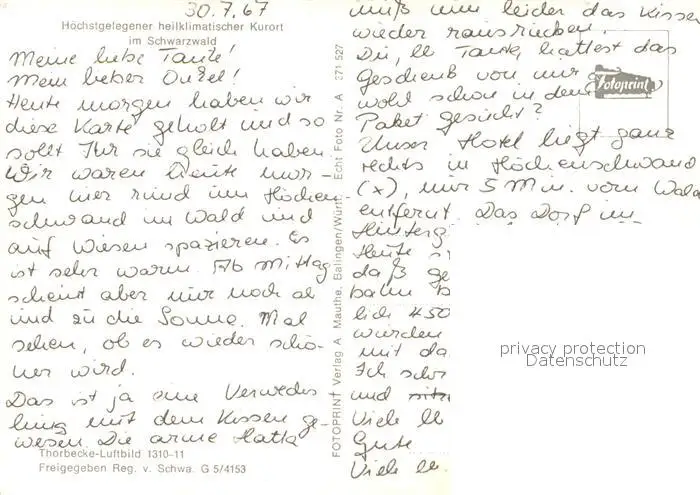 30.7.67
Höchstgelegener heilklimatischer Kurort
im Schwarzwald
Meine liebe Tante!
Mein lieber Onkel!
Heute morgen haben wir
diese Karte geholt und so
sollt Ihr sie gleich haben
Wir waren heute mor-
gen hier rund um Höchen
schwand im Wald und
auf Wiesen spazieren. Es
ist sehr warm. Ab Mittag
scheint aber nur noch ab
und zu die Sonne. Mal
sehen, ob es wieder schö-
ner wird.
Das ist ja eine Verwechs
lung mit dem Kissen ge-
wesen. Die arme
Thorbecke-Luftbild 1310-11
Freigegeben Reg. v. Schwa. G 5/4153
FOTOPRINT Verlag A. Mauthe, Balingen/Württ. Echt Foto Nr. A 271 527
muß nun leider das Kissen
wieder rausrücken.
Du, lb Tante, hattest das
Geschenk von mir
wohl schon in dem
Paket gesucht?
Fotoprint
Unser Hotel liegt ganz
rechts in Höchenschwand
(x), nur 5 Min. vom Wald
entfernt. Das Dorf im
Hinterg
Heute
daß ge
bahn
lich 450
wurden
mit da
Ich
und
Viele lb
Gute
Viele lb.
privacy protection
Datenschutz